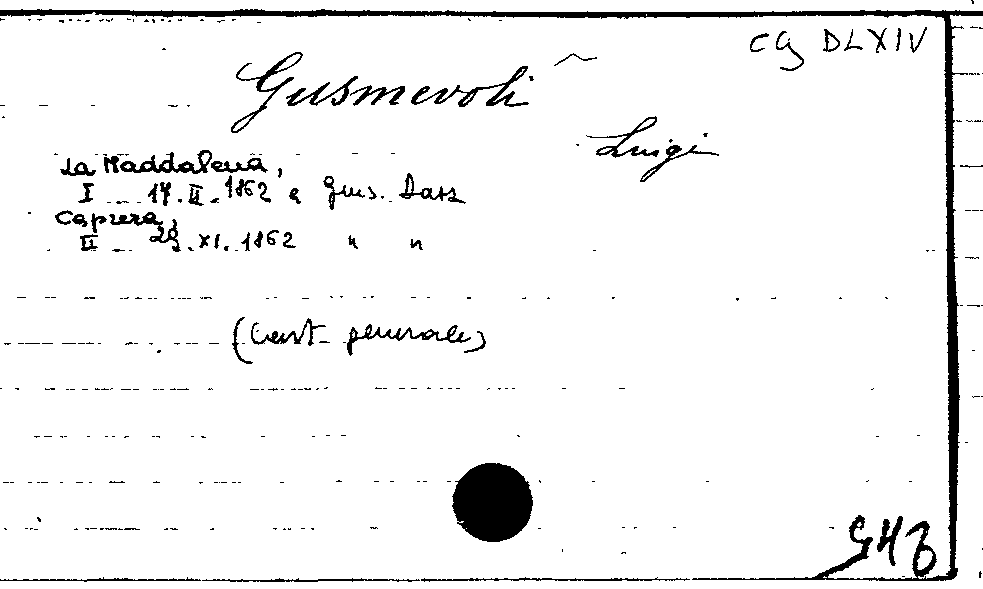 CG DLXIV
Gusmevoli
Luigi
La Maddalena,
I 17.II.1862 a Gius.
Caprera,
II 29.XI.1862 " "
(Cart. generale)